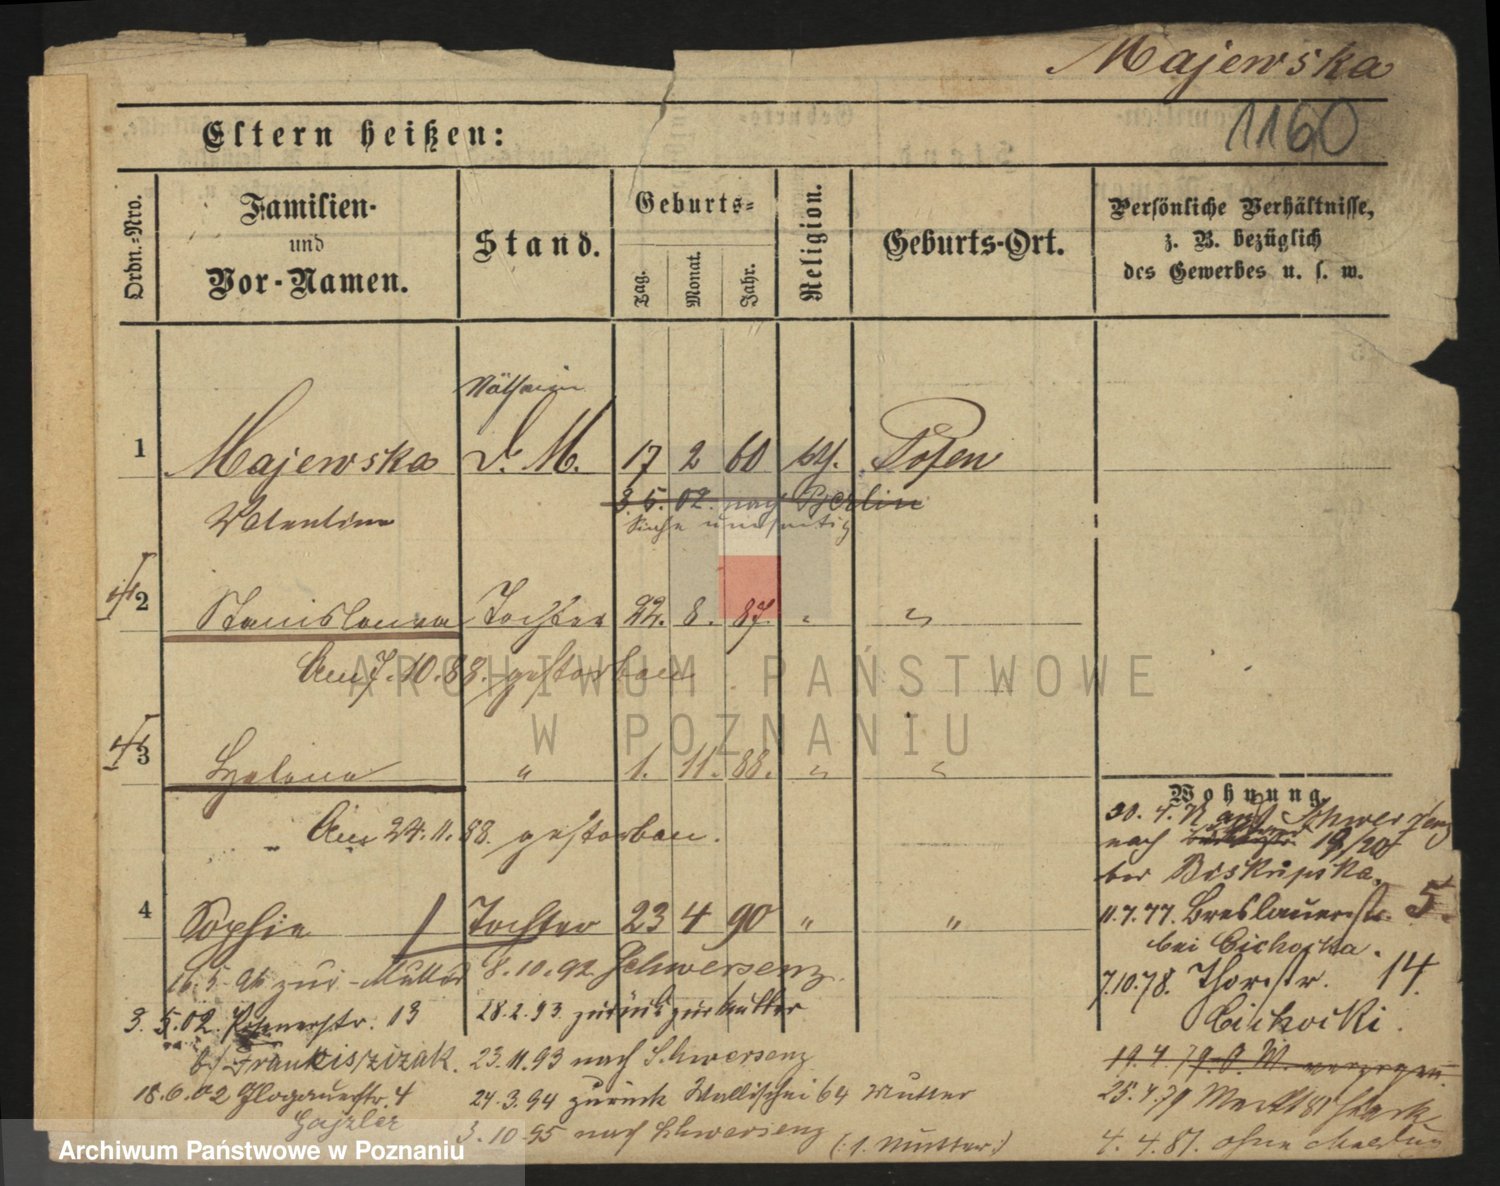 Majewska
1160
Eltern heißen:
Ordn.-Nro.
Familien-
und
Vor-Namen.
Stand.
Geburts-
Tag.
Monat.
Jahr.
Religion.
Geburts-Ort.
Persönliche Verhältnisse,
z. B. bezüglich
des Gewerbes u. s. w.
Näherin
1 Majewska D. M. 17 2 60 kth. Posen
Valentine
3. 5. 02. nach Berlin
Siehe umseitig
2 Stanislawa Tochter 22. 8. 87. " "
Am 7. 10. 88. gestorben
3 Helena " 1. 11. 88. " "
Am 24. 11. 88. gestorben.
4 Sophie Tochter 23 4 90 " "
16. 5. 96 zur Mutter
8. 10. 92 Schwersenz.
3. 5. 02. Posenerstr. 13
28. 2. 93. zurück zur Mutter
b/ Frankiszizak.
23. 11. 93 nach Schwersenz
18. 6. 02 Glogauerstr. 4
24. 3. 94 zurück Wallischei 64 Mutter
Gajzler
3. 10. 95 nach Schwersenz (: 1. Mutter :)
Wohnung
30. 4. 77 aus Schwersenz
nach 19/20
bei Biskupska.
11. 7. 77. Breslauerstr. 5.
bei Cichocka.
7. 10. 78. Thorstr. 14.
Cichocki.
19. 4. 79. O. W. verzogen.
25. 4. 79 Markt 81
4. 4. 81. ohne Meldung
ARCHIWUM PAŃSTWOWE
W POZNANIU
Archiwum Państwowe w Poznaniu